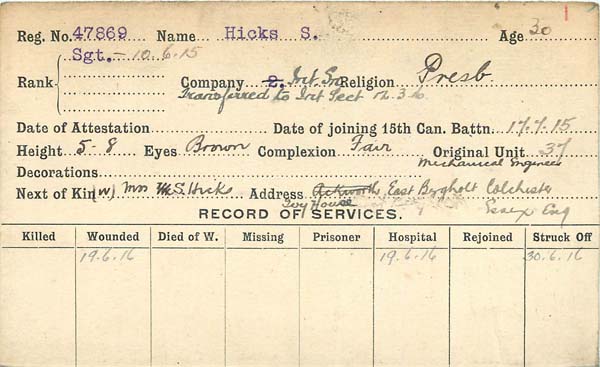 Reg. No. 47869 Name Hicks S. Age 30
Sgt. - 10.6.15
Rank Company 2. Religion Presb.
Transferred to Int Sect 12.3.16
Date of Attestation Date of joining 15th Can. Battn. 17.7.15
Height 5-8 Eyes Brown Complexion Fair Original Unit 37
Mechanical Engineer
Decorations
Next of Kin (W) Mrs S. Hicks Address Ackworth East Bergholt Colchester
Ivy House Essex Eng
RECORD OF SERVICES.
Killed Wounded Died of W. Missing Prisoner Hospital Rejoined Struck Off
19.6.16 19.6.16 30.6.16